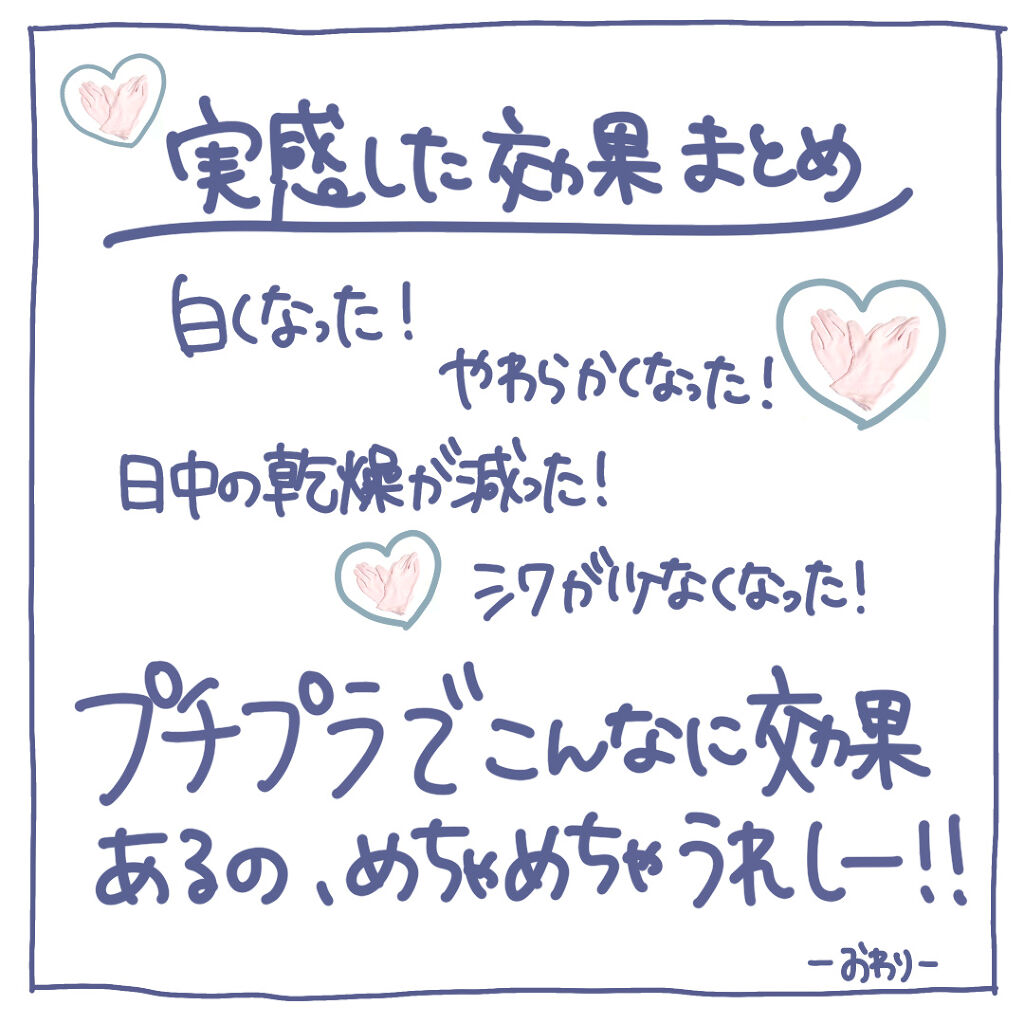 実感した効果まとめ
白くなった！
やわらかくなった！
日中の乾燥が減った！
シワがいけなくなった！
プチプラでこんなに効果
あるの、めちゃめちゃうれしー！！
ーおわりー